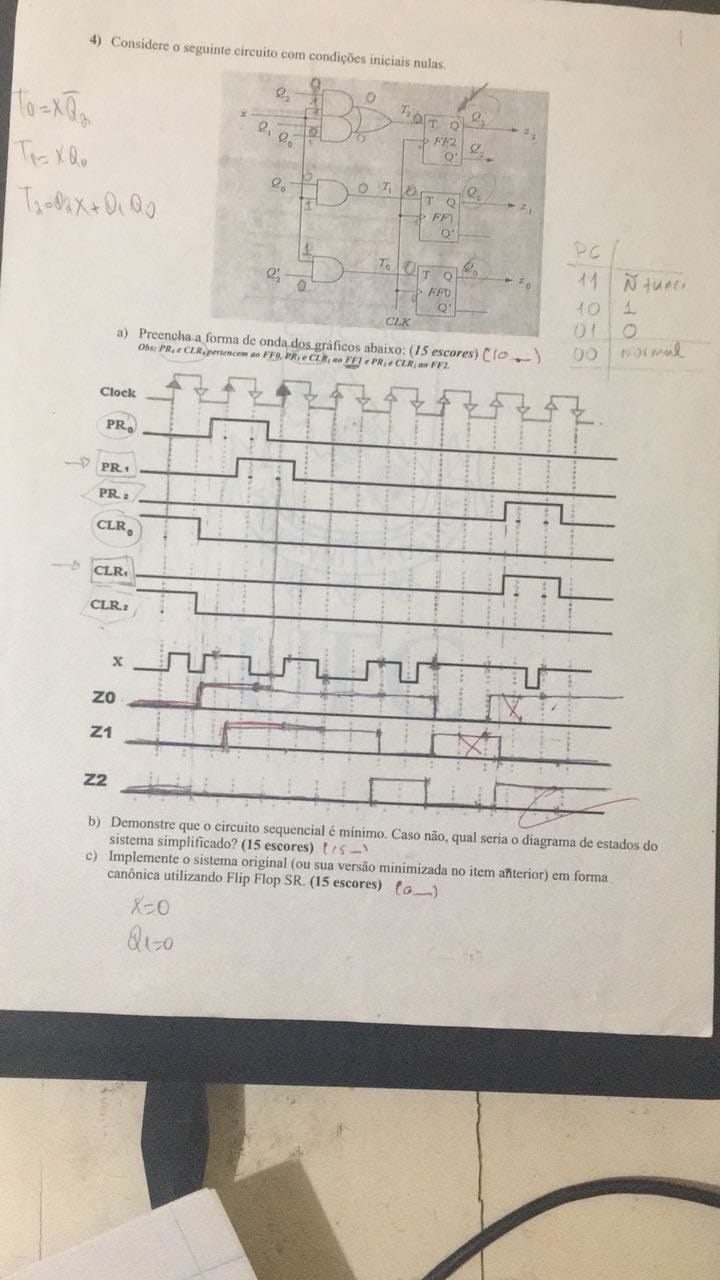 4) Considere o seguinte circuito com condições iniciais nulas.
T0 = XQ̄2
T1 = XQ0
T2 = Q2X + Q1Q0
Q2
x
Q1
Q0
0
T2
T Q
FF2
Q'
Q2
z2
Q0
0
T1
T Q
FF1
Q'
Q1
z1
1
1
Q'2
0
T0
0
T Q
FF0
Q'
Q0
z0
CLK
PC
11
10 1
01 0
00 normal
a) Preencha a forma de onda dos gráficos abaixo: (15 escores) (10
Obs: PR0 e CLR0 pertencem ao FF0, PR1 e CLR1 ao FF1 e PR2 e CLR2 ao FF2.
Clock
PR0
PR1
PR2
CLR0
CLR1
CLR2
X
Z0
Z1
Z2
b) Demonstre que o circuito sequencial é mínimo. Caso não, qual seria o diagrama de estados do
sistema simplificado? (15 escores) (15
c) Implemente o sistema original (ou sua versão minimizada no item anterior) em forma
canônica utilizando Flip Flop SR. (15 escores) (0
X=0
Q1=0